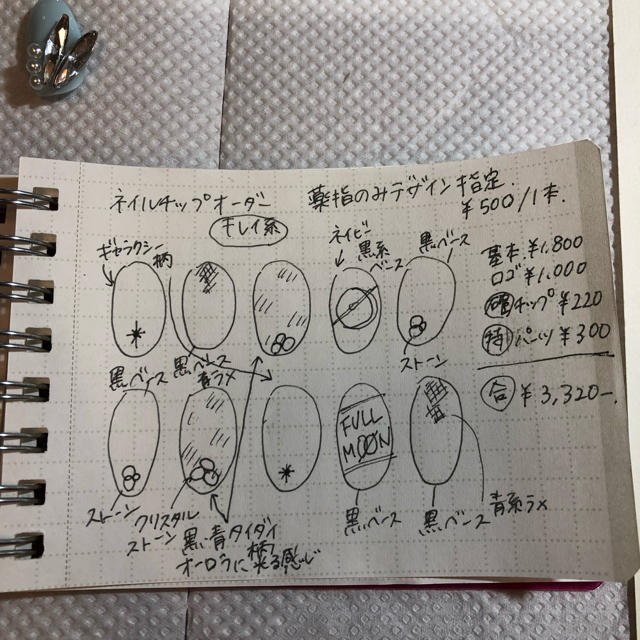 ネイルチップオーダー
薬指のみデザイン指定.
¥500/1本.
キレイ系
ギャラクシー
柄
ネイビー
黒系
ベース
黒ベース
基本. ¥1,800
ロゴ ¥1,000
チップ ¥220
パーツ ¥300
合 ¥3,320-.
ストーン
黒ベース
黒ベース
青ラメ
FULL
MOON
ストーン
クリスタル
ストーン
黒、青タイダイ
柄
黒ベース
黒ベース
青系ラメ